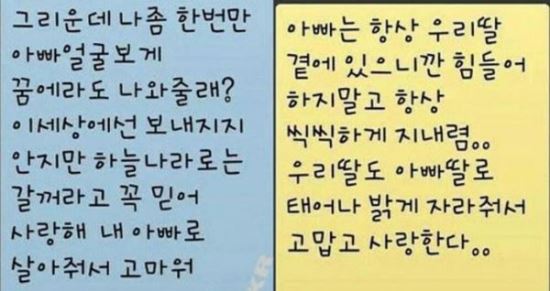 그리운데 나좀 한번만
아빠얼굴보게
꿈에라도 나와줄래?
이세상에선 보내지지
안지만 하늘나라로는
갈꺼라고 꼭 믿어
사랑해 내 아빠로
살아줘서 고마워
아빠는 항상 우리딸
곁에 있으니깐 힘들어
하지말고 항상
씩씩하게 지내렴。。
우리딸도 아빠딸로
태어나 밝게 자라줘서
고맙고 사랑한다。。